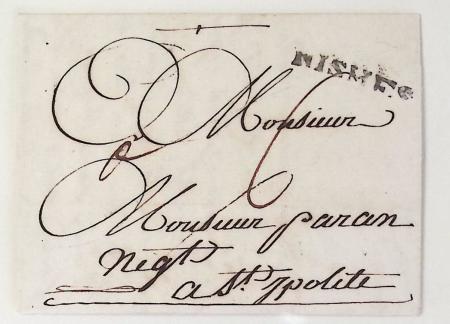 NISMES
A Monsieur
Monsieur paran
Negt.
a St. ypolite